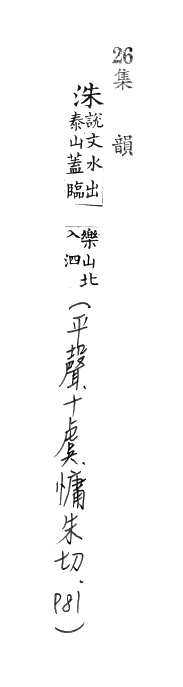 26集韻
洙說文水出泰山蓋臨樂山北入泗(平聲、十虞、慵朱切、P81)